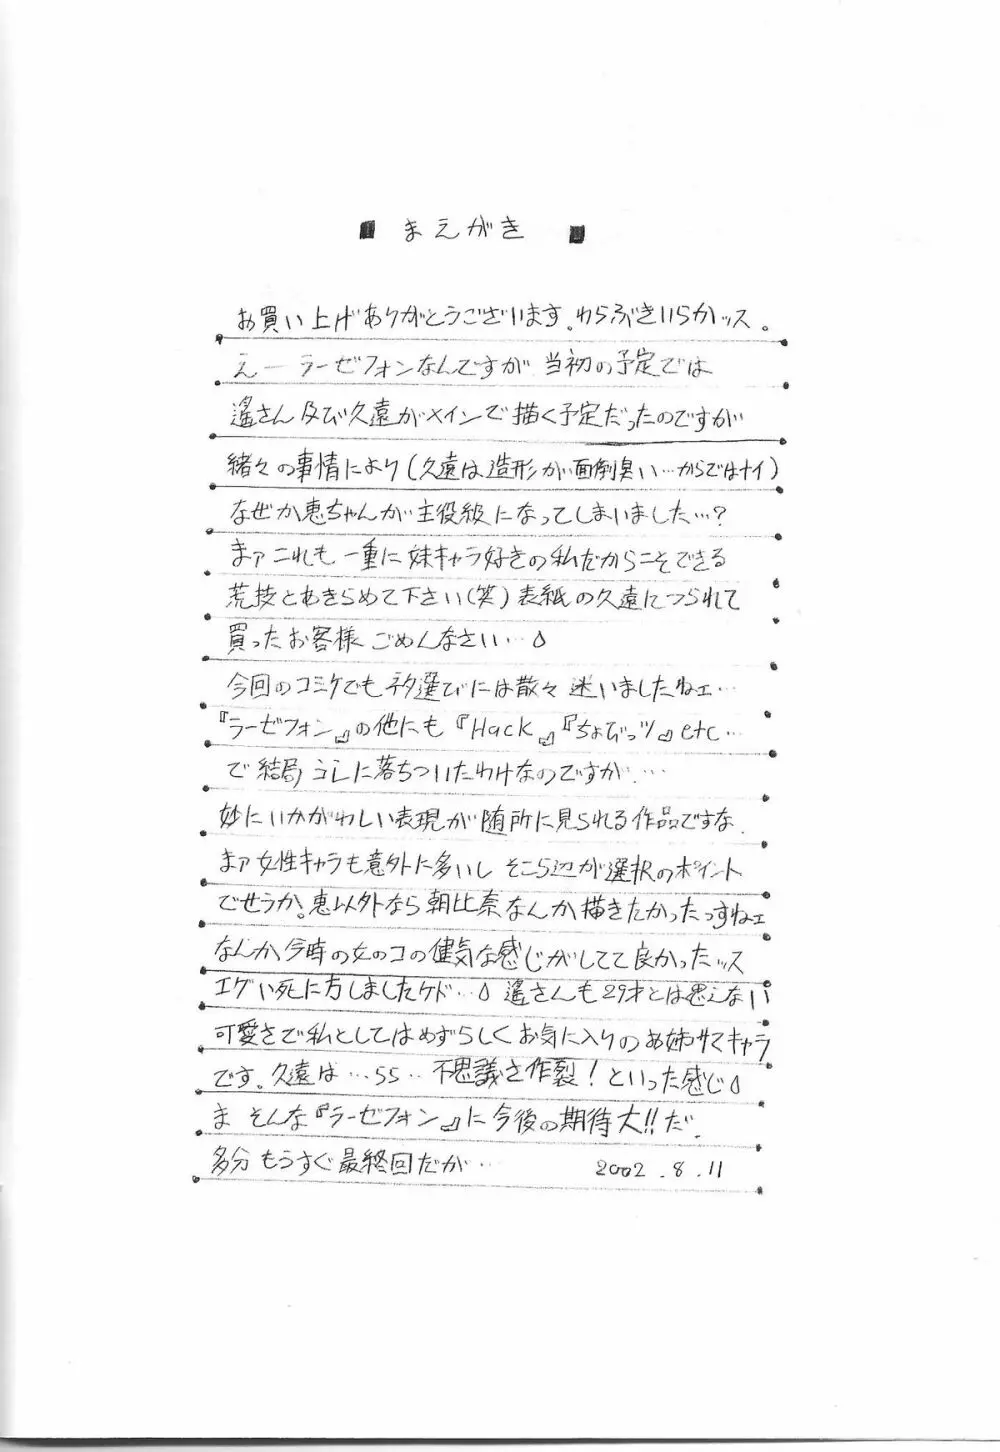 ■ まえがき ■
お買い上げありがとうございます。わらぶきいらかッス。
えー ラーゼフォンなんですが 当初の予定では
遙さん及び久遠がメインで描く予定だったのですが
緒々の事情により(久遠は造形が面倒臭い…からではナイ)
なぜか恵ちゃんが主役級になってしまいました…?
まァこれも 一重に妹キャラ好きの私だからこそできる
荒技とあきらめて下さい(笑)表紙の久遠につられて
買ったお客様 ごめんなさい…
今回のコミケでもネタ選びには散々 迷いましたねェ…
『ラーゼフォン』の他にも『Hack』『ちょびっツ』etc…
で結局 コレに落ちついたわけなのですが…
妙にいかがわしい表現が随所に見られる作品ですな.
まァ女性キャラも意外に多いし そこら辺が選択のポイント
でせうか。恵以外なら朝比奈なんか描きたかったっすねェ
なんか今時の女のコの健気な感じがしてて良かったッス
エグい死に方しましたケド… 遙さんも29才とは思えない
可愛さで私としてはめずらしくお気に入りのお姉サマキャラ
です。久遠は…ララ… 不思議さ作裂!といった感じ
ま そんな『ラーゼフォン』に今後の期待大!!だ.
多分もうすぐ最終回だが… 2002.8.11